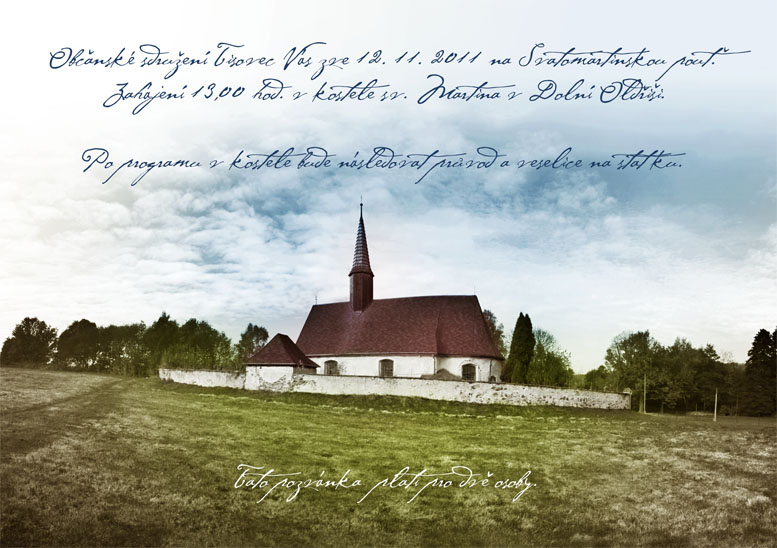 Občanské sdružení Tisovec Vás zve 12. 11. 2011 na Svatomartinskou pouť.
Zahájení 13,00 hod. v kostele sv. Martina v Dolní Oldřiši.
Po programu v kostele bude následovat průvod a veselice na statku.
Tato pozvánka platí pro dvě osoby.